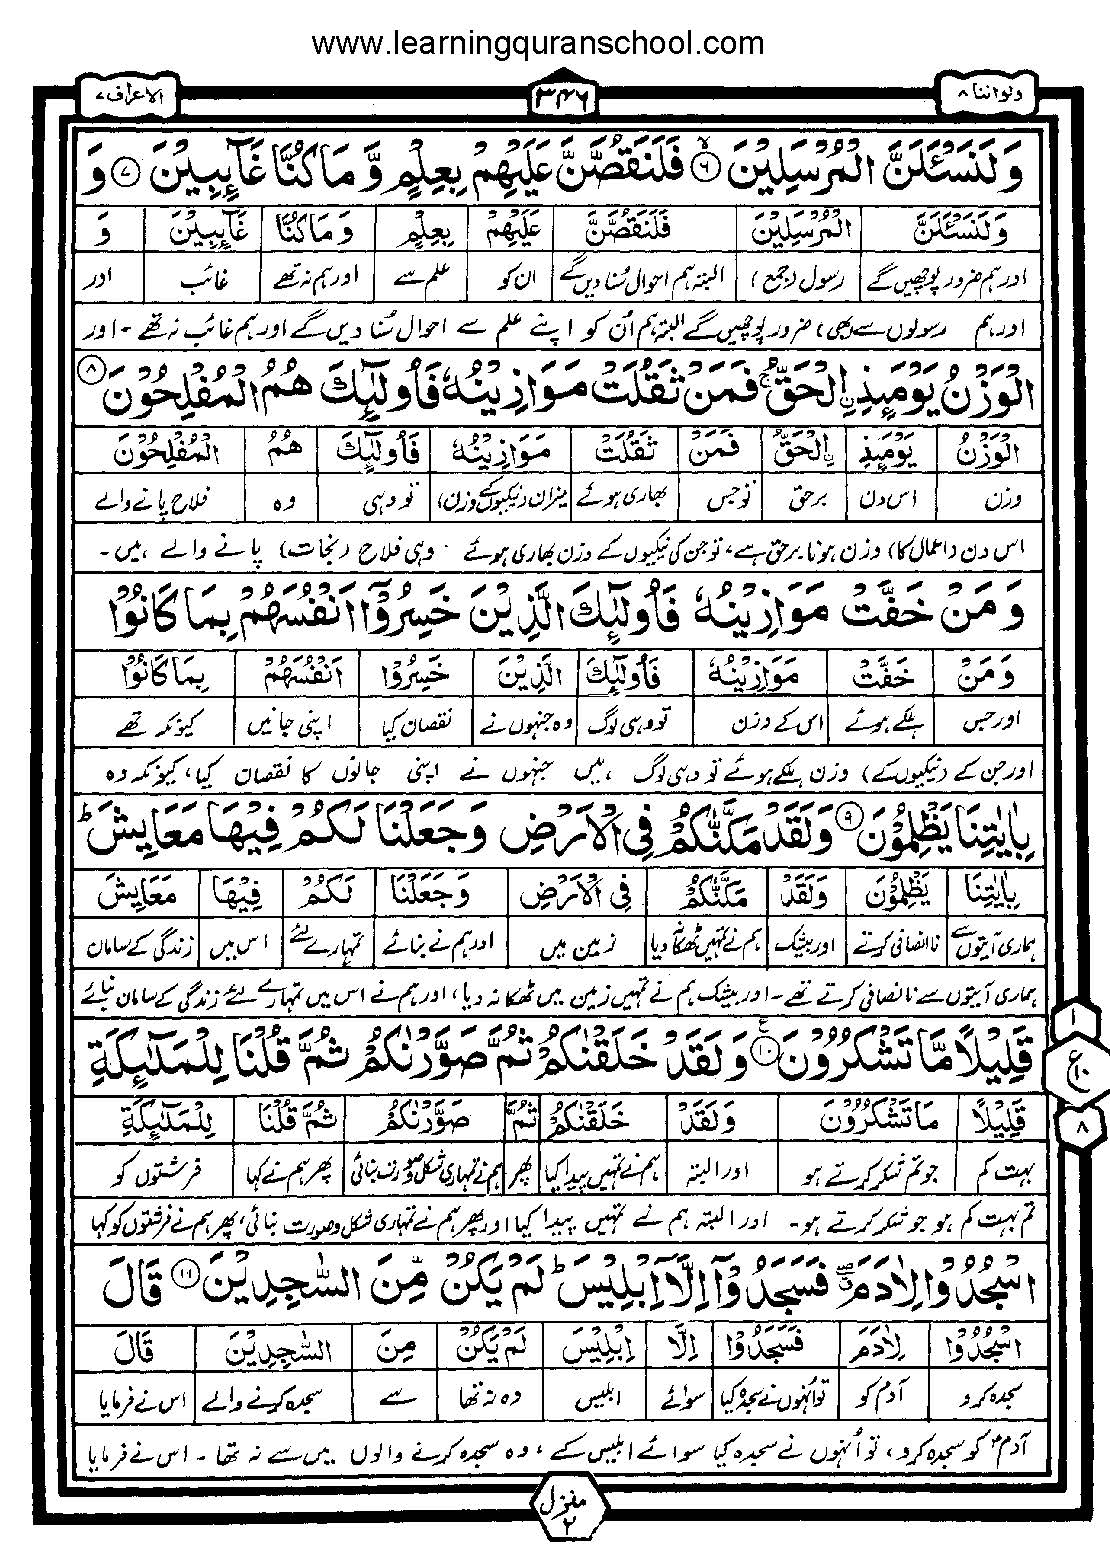 www.learningquranschool.com
ولواننا ۸
۳۴۶
الاعراف ۷
وَلَنَسْـَٔلَنَّ الْمُرْسَلِيْنَ ۙ۶ فَلَنَقُصَّنَّ عَلَيْهِمْ بِعِلْمٍ وَّمَا كُنَّا غَآئِبِيْنَ ۷ وَ
وَلَنَسْـَٔلَنَّ الْمُرْسَلِيْنَ فَلَنَقُصَّنَّ عَلَيْهِمْ بِعِلْمٍ وَمَا كُنَّا غَآئِبِيْنَ وَ
اور ہم ضرور پوچھیں گے رسول (جمع) البتہ ہم احوال سُنا دیں گے ان کو علم سے اور ہم نہ تھے غائب اور
اور ہم رسولوں سے (بھی) ضرور پوچھیں گے البتہ ہم اُن کو اپنے علم سے احوال سُنا دیں گے اور ہم غائب نہ تھے - اور
الْوَزْنُ يَوْمَئِذِ ۨالْحَقُّ ۚ فَمَنْ ثَقُلَتْ مَوَازِيْنُهٗ فَاُولٰٓئِكَ هُمُ الْمُفْلِحُوْنَ ۸
الْوَزْنُ يَوْمَئِذِ ۨالْحَقُّ فَمَنْ ثَقُلَتْ مَوَازِيْنُهٗ فَاُولٰٓئِكَ هُمُ الْمُفْلِحُوْنَ
وزن اس دن برحق تو جس بھاری ہوئے میزان (نیکیوں کے وزن) تو وہی وہ فلاح پانے والے
اس دن (اعمال کا) وزن ہونا برحق ہے، تو جن کی نیکیوں کے وزن بھاری ہوئے وہی فلاح (نجات) پانے والے ہیں -
وَمَنْ خَفَّتْ مَوَازِيْنُهٗ فَاُولٰٓئِكَ الَّذِيْنَ خَسِرُوْٓا اَنْفُسَهُمْ بِمَا كَانُوْا
وَمَنْ خَفَّتْ مَوَازِيْنُهٗ فَاُولٰٓئِكَ الَّذِيْنَ خَسِرُوْا اَنْفُسَهُمْ بِمَا كَانُوْا
اور جس ہلکے ہوئے اس کے وزن تو وہی لوگ وہ جنہوں نے نقصان کیا اپنی جانیں کیونکہ تھے
اور جن کے (نیکیوں کے) وزن ہلکے ہوئے تو وہی لوگ ہیں جنہوں نے اپنی جانوں کا نقصان کیا، کیونکہ وہ
بِاٰيٰتِنَا يَظْلِمُوْنَ ۹ وَلَقَدْ مَكَّنّٰكُمْ فِى الْاَرْضِ وَجَعَلْنَا لَكُمْ فِيْهَا مَعَايِشَ ؕ
بِاٰيٰتِنَا يَظْلِمُوْنَ وَلَقَدْ مَكَّنّٰكُمْ فِى الْاَرْضِ وَجَعَلْنَا لَكُمْ فِيْهَا مَعَايِشَ
ہماری آیتوں سے ناانصافی کرتے اور بیشک ہم نے تمہیں ٹھکانہ دیا زمین میں اور ہم نے بنائے تمہارے لئے اس میں زندگی کے سامان
ہماری آیتوں سے ناانصافی کرتے تھے - اور بیشک ہم نے تمہیں زمین میں ٹھکانہ دیا، اور ہم نے اس میں تمہارے لئے زندگی کے سامان بنائے
قَلِيْلًا مَّا تَشْكُرُوْنَ ۱۰ وَلَقَدْ خَلَقْنٰكُمْ ثُمَّ صَوَّرْنٰكُمْ ثُمَّ قُلْنَا لِلْمَلٰٓئِكَةِ
۱
ع ۱۰
۸
قَلِيْلًا مَا تَشْكُرُوْنَ وَلَقَدْ خَلَقْنٰكُمْ ثُمَّ صَوَّرْنٰكُمْ ثُمَّ قُلْنَا لِلْمَلٰٓئِكَةِ
بہت کم جو تم شکر کرتے ہو اور البتہ ہم نے تمہیں پیدا کیا پھر ہم نے تمہاری شکل و صورت بنائی پھر ہم نے کہا فرشتوں کو
تم بہت کم ہو جو شکر کرتے ہو - اور البتہ ہم نے تمہیں پیدا کیا اور پھر ہم نے تمہاری شکل و صورت بنائی، پھر ہم نے فرشتوں کو کہا
اسْجُدُوْا لِاٰدَمَ ۖ فَسَجَدُوْٓا اِلَّآ اِبْلِيْسَ ؕ لَمْ يَكُنْ مِّنَ السّٰجِدِيْنَ ۱۱ قَالَ
اسْجُدُوْا لِاٰدَمَ فَسَجَدُوْا اِلَّا اِبْلِيْسَ لَمْ يَكُنْ مِنَ السّٰجِدِيْنَ قَالَ
سجدہ کرو آدم کو تو اُنہوں نے سجدہ کیا سوائے ابلیس وہ نہ تھا سے سجدہ کرنے والے اس نے فرمایا
آدمؑ کو سجدہ کرو، تو اُنہوں نے سجدہ کیا سوائے ابلیس کے، وہ سجدہ کرنے والوں میں سے نہ تھا - اس نے فرمایا
منزل ۲